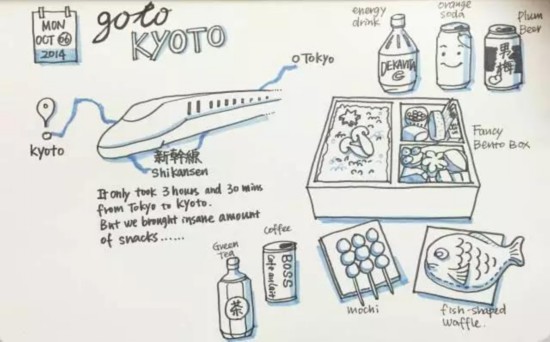 MON
OCT 06
2014
goto
KYOTO
Tokyo
Kyoto
新幹線
Shikansen
It only took 3 hours and 30 mins
from Tokyo to Kyoto.
But we brought insane amount
of snacks......
energy
drink
DEKAVITA
C
orange
soda
Plum
Beer
男梅
Fancy
Bento Box
Green
Tea
茶
Coffee
BOSS
Cafe au lait
mochi
fish-shaped
Waffle.